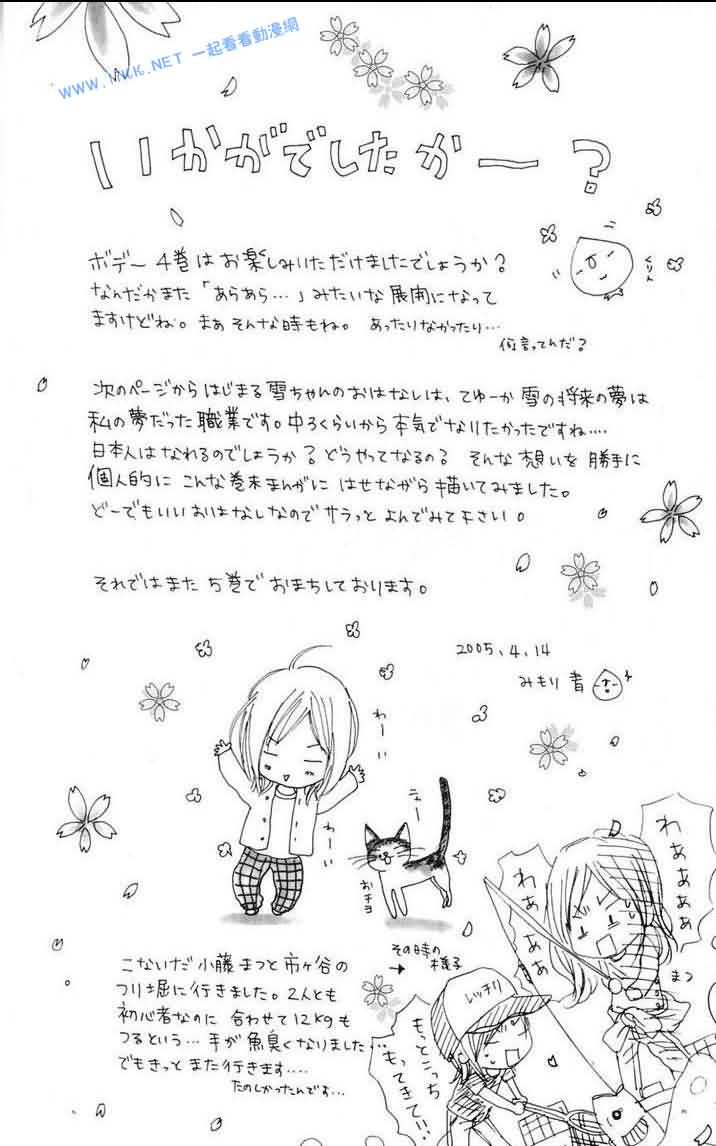 WWW.17KK.NET 一起看看動漫網
いかがでしたかー?
ボデー4巻はお楽しみいただけましたでしょうか?
なんだかまた「あらあら…」みたいな展開になって
ますけどね。まぁそんな時もね。あったりなかったり…
何言ってんだ?
くりん
次のページからはじまる雪ちゃんのおはなしは、てゆーか雪の将来の夢は
私の夢だった職業です。中3くらいから本気でなりたかったですね….
日本人はなれるのでしょうか?どうやってなるの? そんな想いを勝手に
個人的にこんな巻末まんがにはせながら描いてみました。
どーでもいいおはなしなのでサラっとよんでみて下さい。
それではまた5巻でおまちしております。
2005.4.14
みもり青
わーい
わーい
ニャー
おチヨ
こないだ小藤まつと市ヶ谷の
つり堀に行きました。2人とも
初心者なのに合わせて12kgも
つるという…手が魚臭くなりました…
でもきっとまた行きます….
たのしかったんです…
その時の
様子
わぁぁぁぁ
わぁぁぁぁ
まつ
もっとこっち
もってきて!!